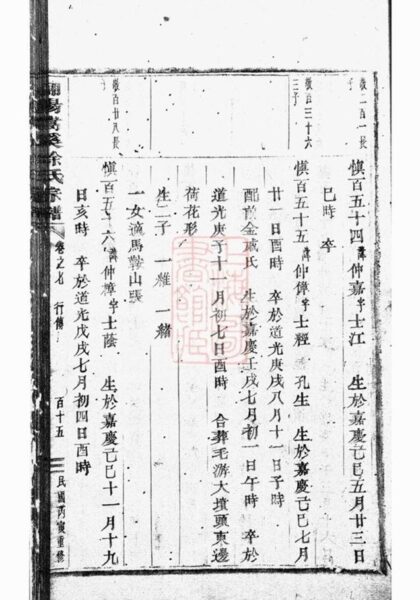 敬二百一長子
慎百五十四諱仲嘉字士江　生於嘉慶己巳五月廿三日
巳時　卒
敬百三十六三子
慎百五十五諱仲璋字士經　孔生　生於嘉慶己巳七月
廿一日酉時　卒於道光庚戌八月十一日子時
配前金戚氏　生於嘉慶壬戌七月初一日午時　卒於
道光庚子十一月初七日酉時　合葬毛游大墳頭東邊
荷花形
生二子　一雜　一緒
一女適馬鞍山張
敬百廿八長子
慎百五十六諱仲樟字士蔭　生於嘉慶己巳十一月十九
日亥時　卒於道光戊戌七月初四日酉時
徐氏宗譜
卷之七　行傳
百十五
民國丙寅重修